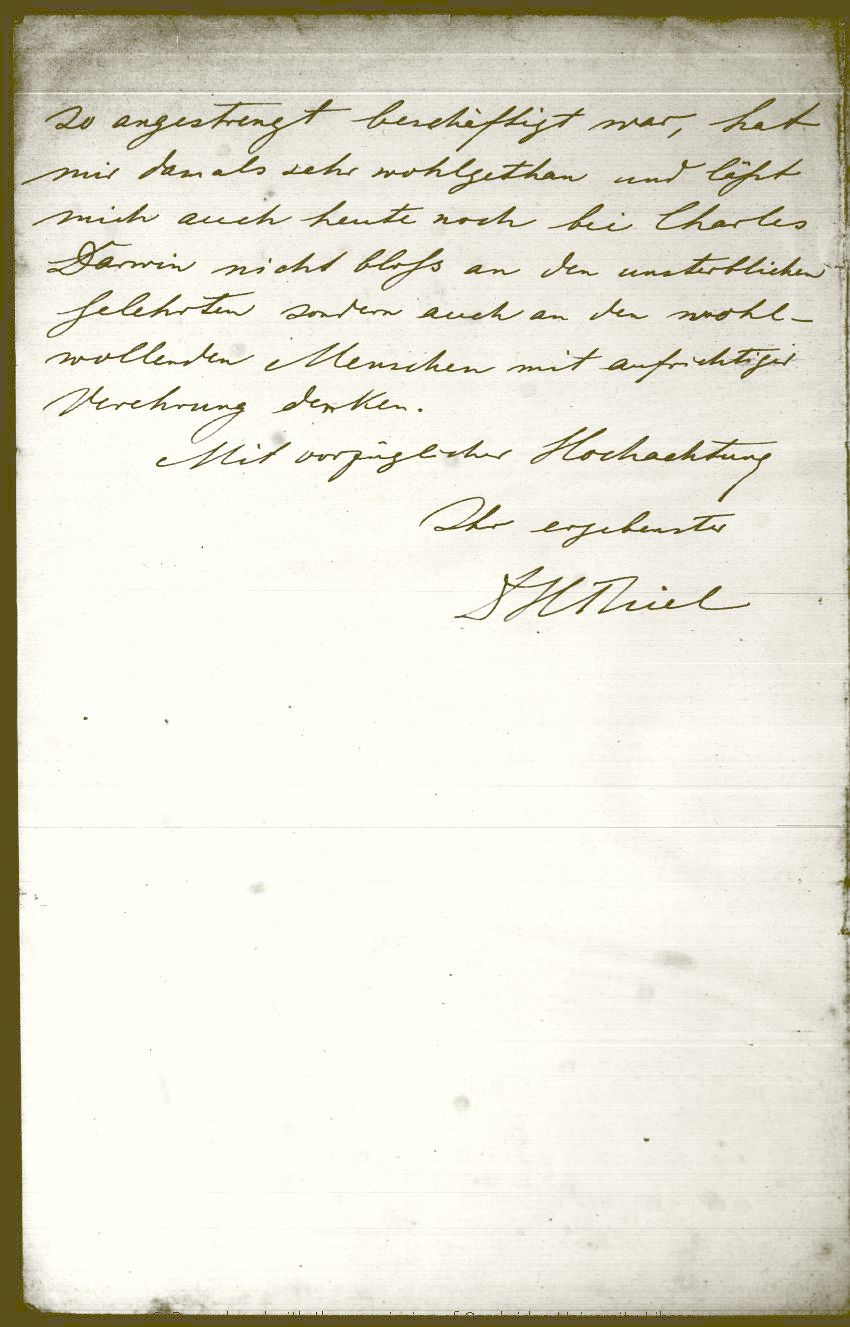 so angestrengt beschäftigt war, hat
mir damals sehr wohlgethan und läßt
mich auch heute noch bei Charles
Darwin nicht bloß an den unsterblichen
Gelehrten sondern auch an den wohl-
wollenden Menschen mit aufrichtiger
Verehrung denken.
Mit vorzüglicher Hochachtung
Ihr ergebenster
Dr H Thiel